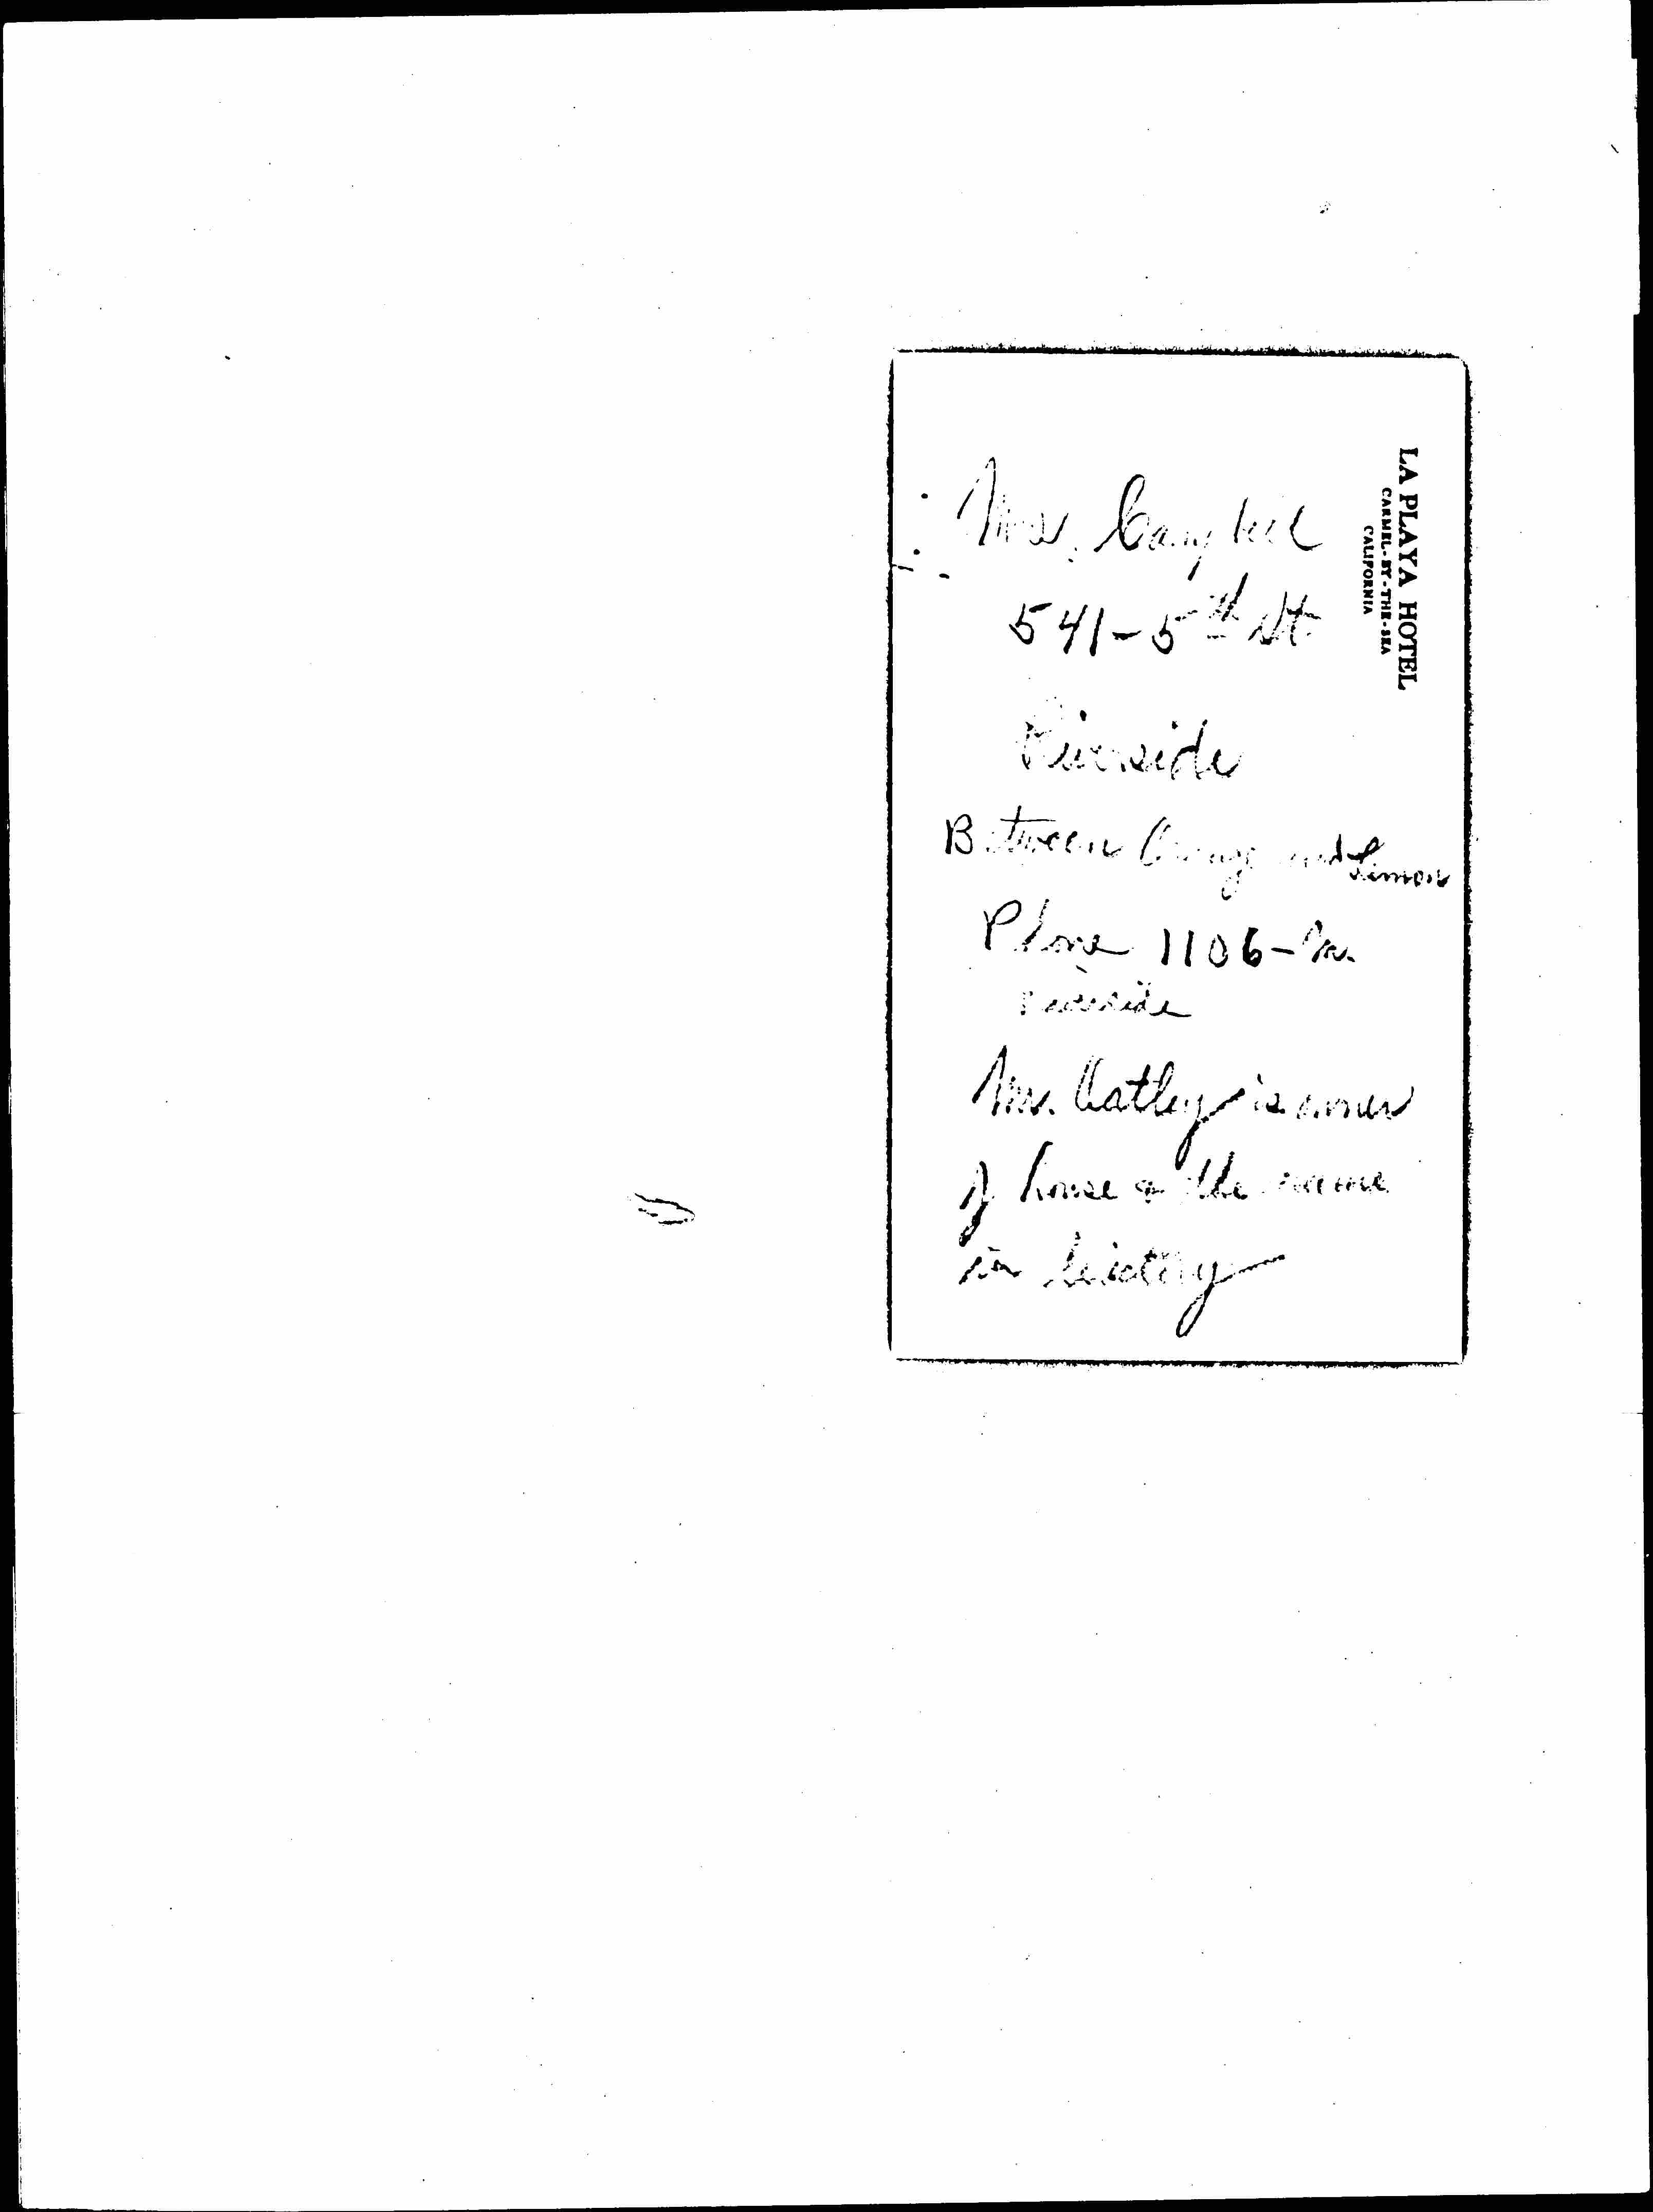 LA PLAYA HOTEL
CARMEL-BY-THE-SEA
CALIFORNIA
Mrs. Campbell
541-5th St.
Riverside
Between Orange and Lemon
Phone 1106-M.
Riverside
Mr. Oatley is owner
of house & the name
in